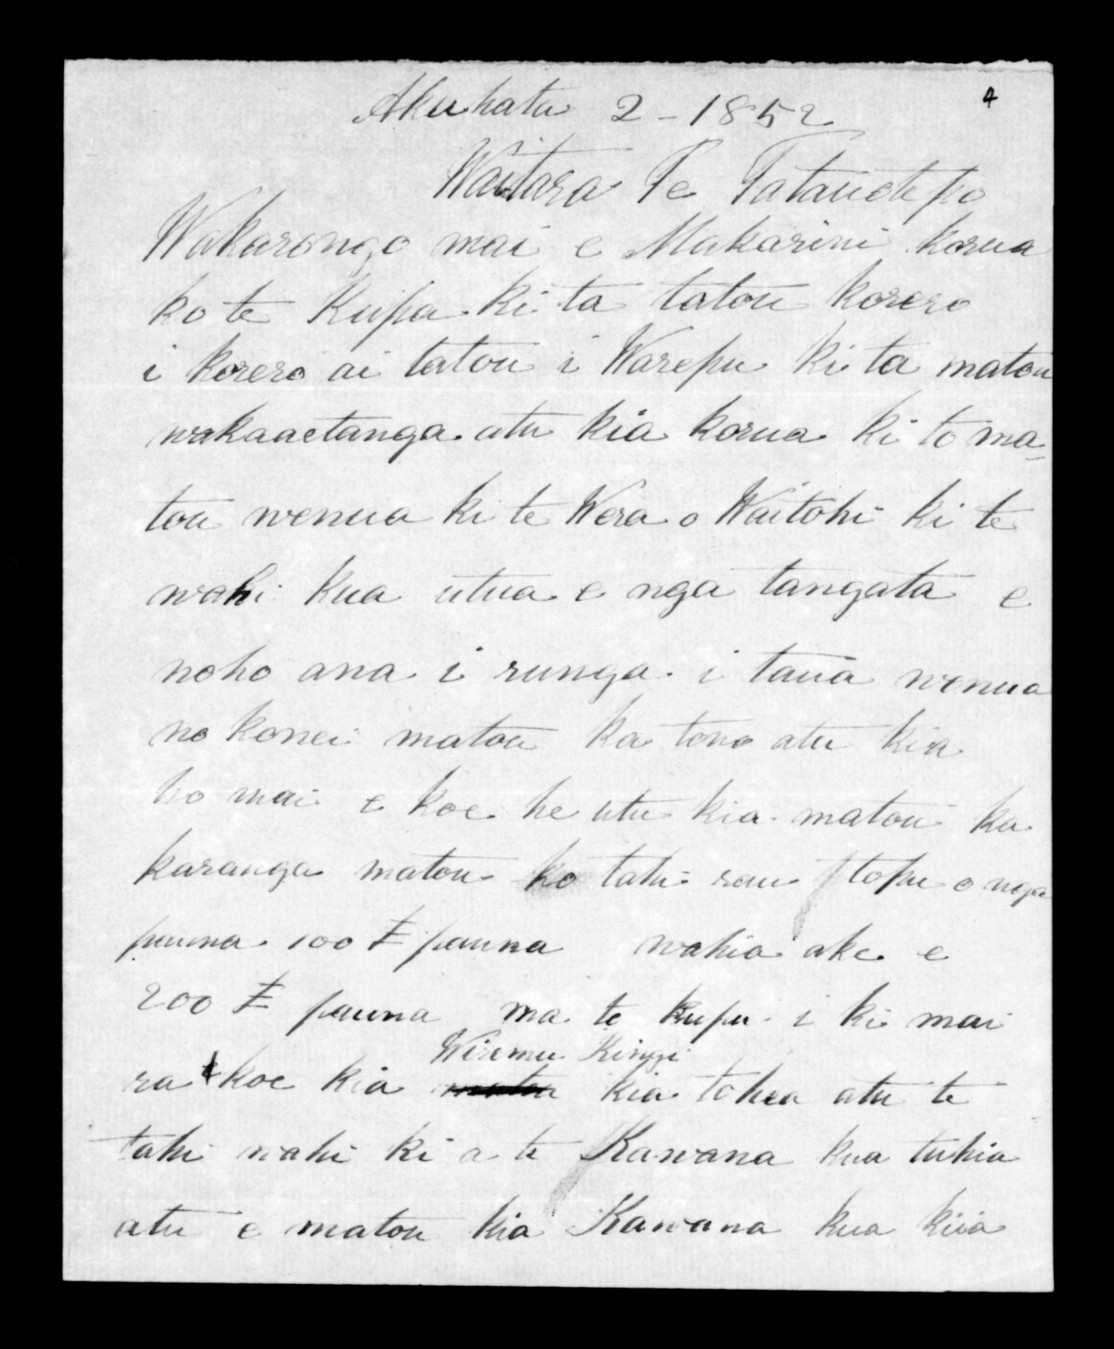 4
Akuhata 2 - 1852
Waitara Te Tatauotepo
Wakarongo mai e Makarini korua
ko te Kupa ki ta tatou korero
i korero ai tatou i Warepu ki ta matou
wakaaetanga atu kia korua ki to ma-
tou wenua ki te Wera o Waitohi ki te
wahi kua utua e nga tangata e
noho ana i runga i taua wenua
no konei matou ka tono atu kia
ho mai e koe he utu kia matou ka
karanga matou ko tahi rau topu o nga
pauna 100 £ pauna wahia ake e
200 £ pauna ma te kupu i ki mai
Wiremu Kingi
ra koe kia kia tohea atu te
tahi wahi ki a te Kawana kua tuhia
atu e matou kia Kawana kua kiia